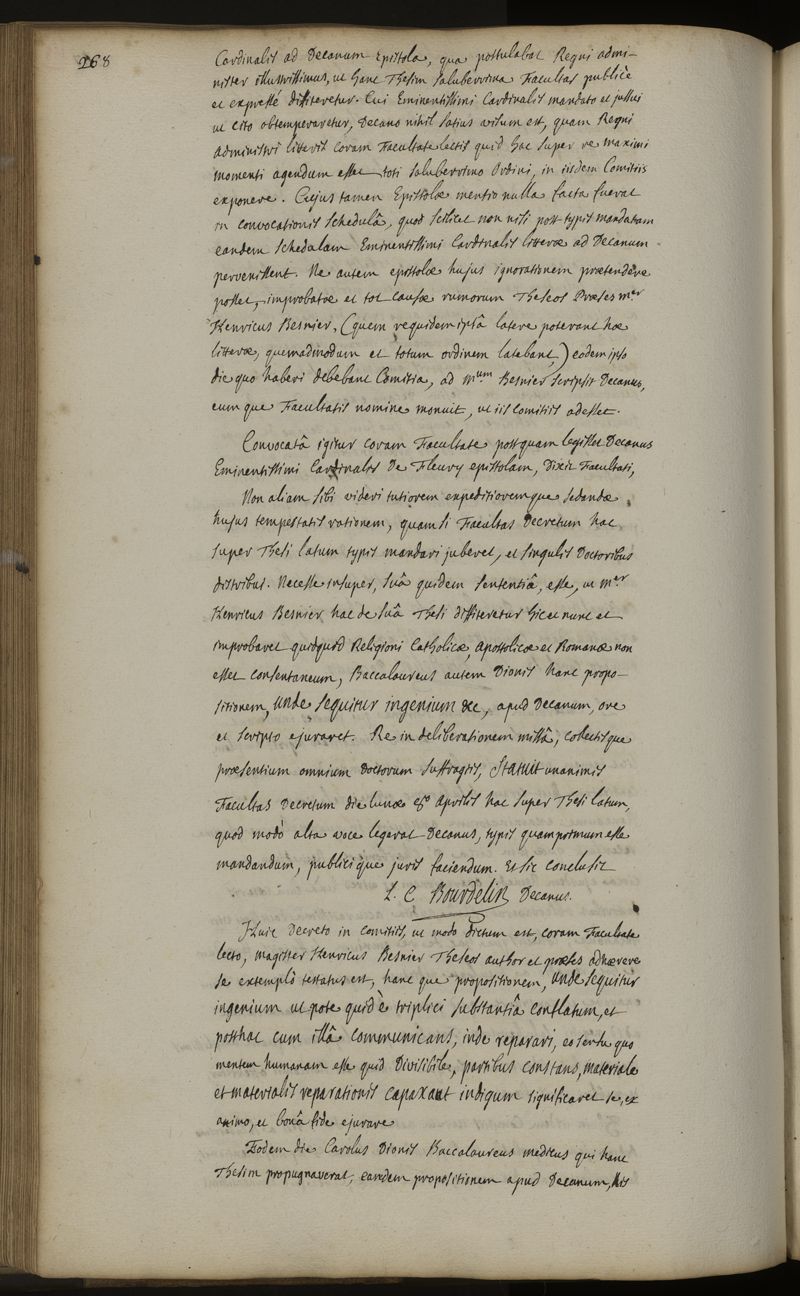 268
Cardinalis ad Decanum Epistola, qua postulabat Regni admi-
nister illustrissimus, ut hanc Thesim saluberrima Facultas publicè
et expressé diffiteretur. Cui Eminentissimi Cardinalis mandato et jussui
ut cito obtemperaretur, Decano nihil satius visum est, quam Regni
administri litteris coram Facultate lectis quid hac super re maximi
momenti agendum esset toti saluberrimo Ordini, in iisdem Comitiis
exponere. Cujus tamen Epistolæ mentio nulla facta fuerat
in convocationis schedulâ, quod scilicet non nisi post typis mandatam
eandem schedulam Eminentissimi Cardinalis litteræ ad Decanum
pervenissent. Ne autem epistolæ hujus ignorationem prætendere
posset, improbatæ et tot causæ rumorum Theseos Præses mer
Henricus Besnier, (quem requidem ipsâ latere poterant hæ
litteræ, quemadmodum et totum ordinem latebant,) eodem ipso
die quo haberi debebant Comitia, ad mum Besnier scripsit Decanus,
eumque Facultatis nomine monuit, ut iis comitiis adesset.
Convocatâ igitur coram Facultate postquam legisset Decanus
Eminentissimi Cardinalis De Fleury epistolam, Dixit Facultati,
Non aliam sibi videri tutiorem expeditioremque sedandæ
hujus tempestatis rationem, quam si Facultas Decretum hac
super Thesi latum typis mandari juberet, et singulis Doctoribus
distribui. Necesse insuper, suâ quidem sententiâ, esse, ut mer
Henricus Besnier hac de suâ Thesi diffiteretur hic et nunc et
improbaret quidquid Religioni Catholicæ, Apostolicæ et Romanæ non
esset consentaneum, Baccalaureus autem Dionis hanc propo-
sitionem, unde sequitur ingenium &c, apud Decanum, ore
et scripto ejuraret. Re in deliberationem missâ, collectisque
præsentium omnium Doctorum suffragiis, Statuit unanimis
Facultas Decretum die lunæ 8o aprilis hac super Thesi latum,
quod modò alta voce legerat Decanus, typis quamprimum esse
mandandum, publicique juris faciendum. Et sic conclusit
L. C Bourdelin Decanus.
Huic Decreto in comitiis, ut modo dictum est, coram Facultate
lecto, magister Henricus Besnier Theseos author et præses adhærere
se extemplò testatus est, hancque propositionem, unde sequitur
ingenium ut pote quid è triplici substantiâ conflatum, et
posthac cum illâ communicans, inde reparari, eo sensu quo
mentem humanam esse quid Divisibile, partibus constans, materiale
et materialis reparationis capax aut indigum significaret se, ex
animo, et bonâ fide ejurare
Eodem die Carolus Dionis Baccalaureus medicus qui hanc
Thesim propugnaverat, eandem propositionem apud Decanum, his